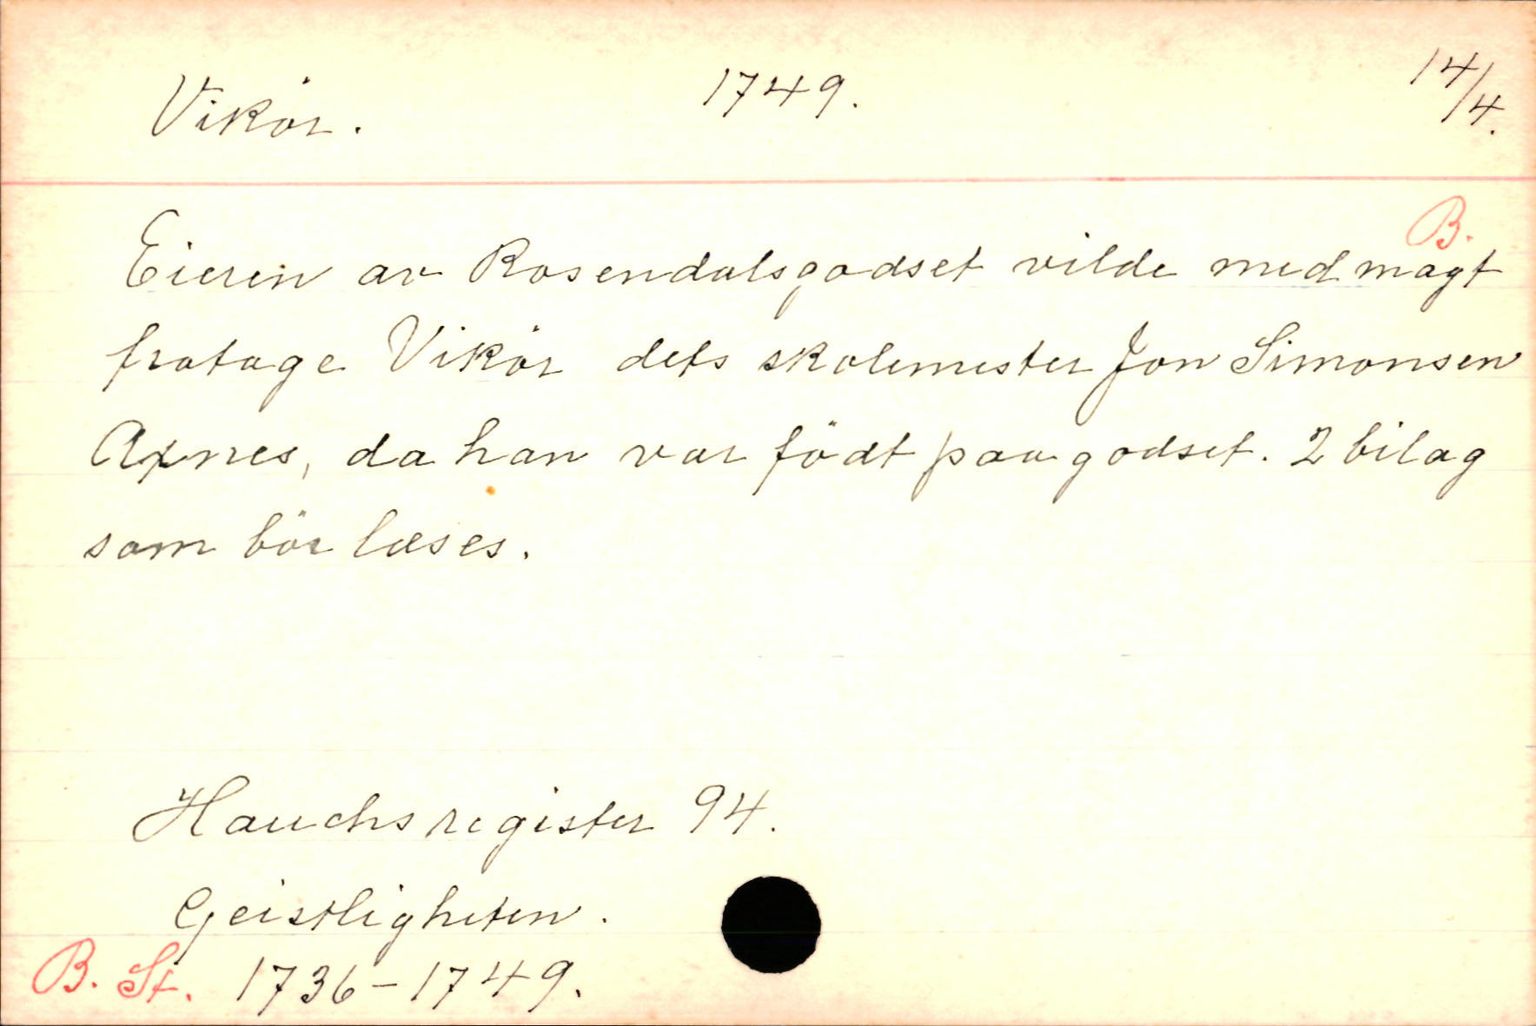 Vikör. 1749. 14/4.
B.
Eieren av Rosendalsgodset vilde med magt
fratage Vikör dets skolemester Jon Simonsen
Axnes, da han var födt paa godset. 2 bilag
som bör læses.
Hauchs register 94.
Geistligheten.
B. St. 1736-1749.